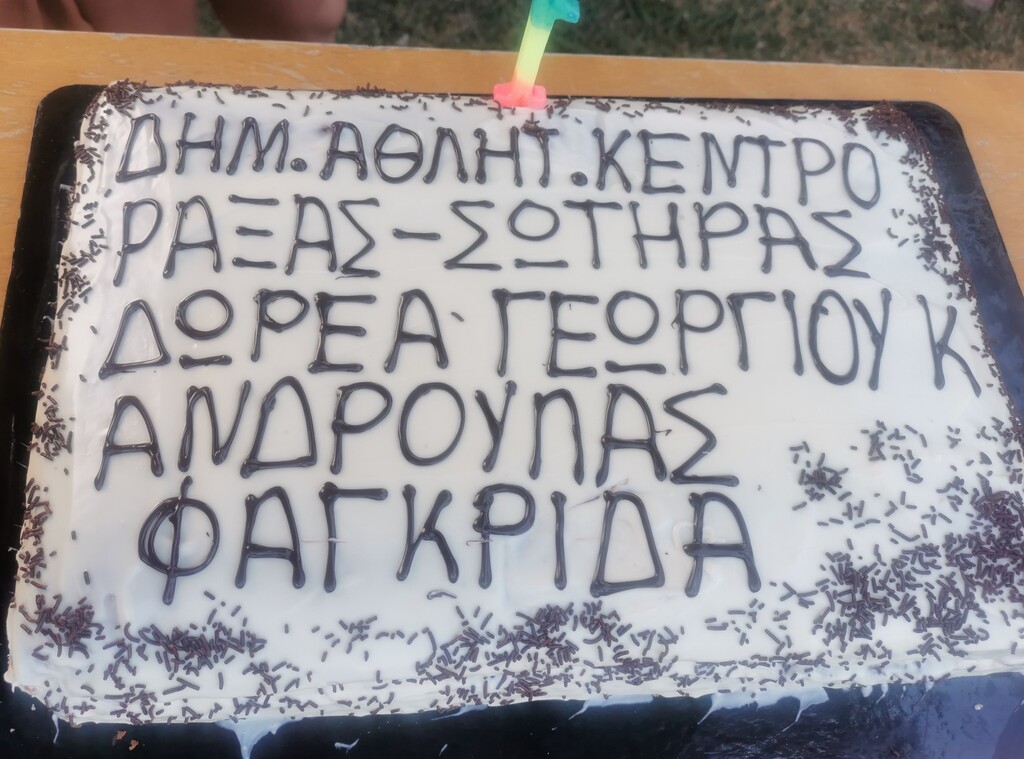 ΔΗΜ. ΑΘΛΗΤ. ΚΕΝΤΡΟ
ΡΑΞΑΣ-ΣΩΤΗΡΑΣ
ΔΩΡΕΑ ΓΕΩΡΓΙΟΥ Κ
ΑΝΔΡΟΥΠΑΣ
ΦΑΓΚΡΙΔΑ